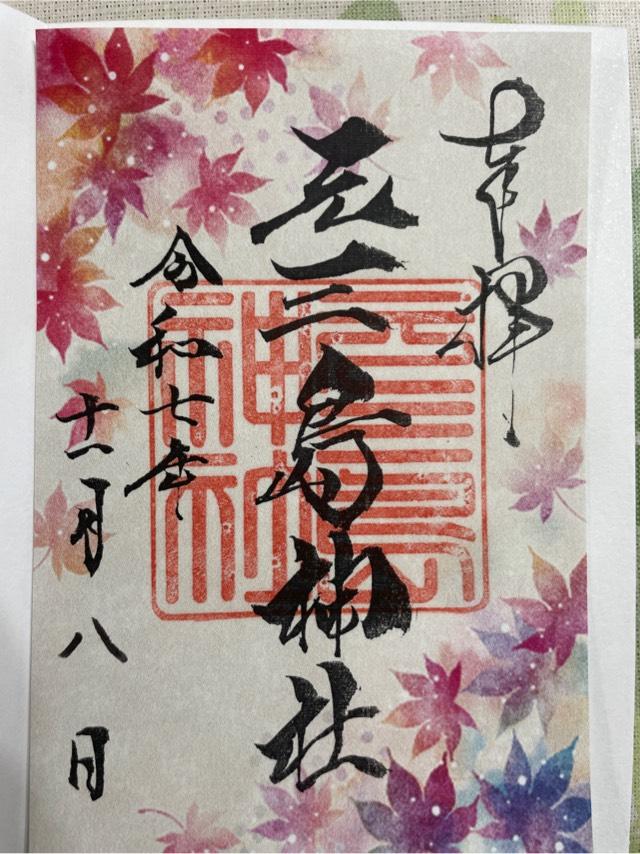 奉拝
元三島神社
令和七年
十一月八日
元三島
神社